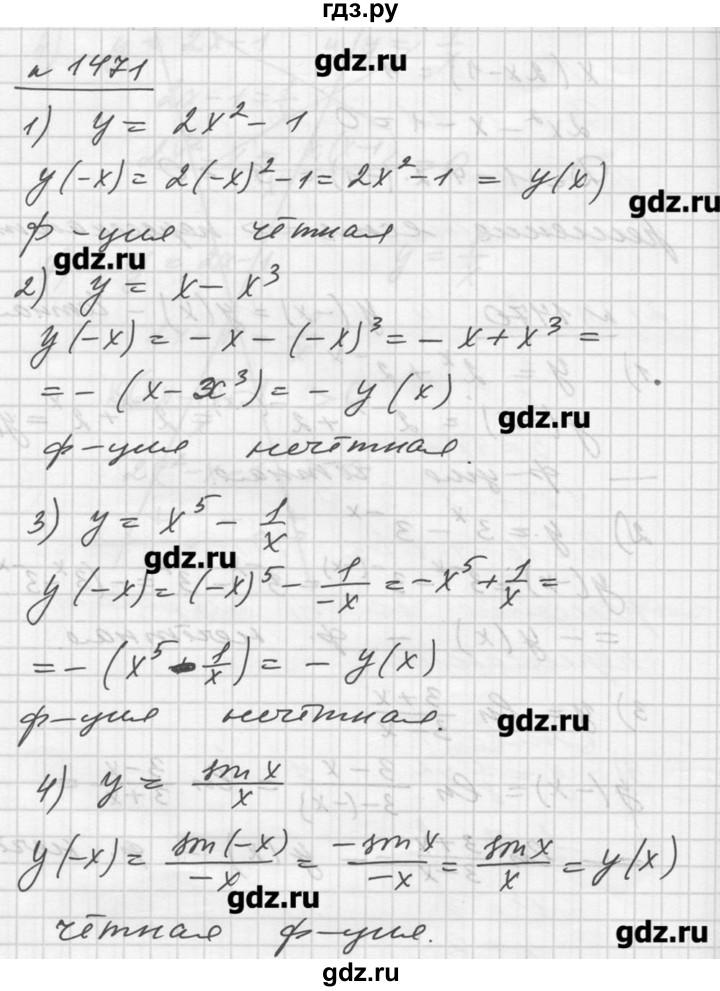 гдз.ру
№ 1471
gdz.ru
1) y = 2x² - 1
y(-x) = 2(-x)² - 1 = 2x² - 1 = y(x)
gdz.ru
ф-ция чётная
gdz.ru
2) y = x - x³
y(-x) = - x - (-x)³ = - x + x³ =
= - (x - x³) = - y(x).
gdz.ru
ф-ция нечётная.
3) y = x⁵ - 1/x
gdz.ru
y(-x) = (-x)⁵ - 1/-x = -x⁵ + 1/x =
= - (x⁵ - 1/x) = - y(x)
ф-ция нечётная.
gdz.ru
4) y = sin x/x
y(-x) = sin(-x)/-x = -sin x/-x = sin x/x = y(x)
gdz.ru
чётная ф-ция.
gdz.ru
gdz.ru